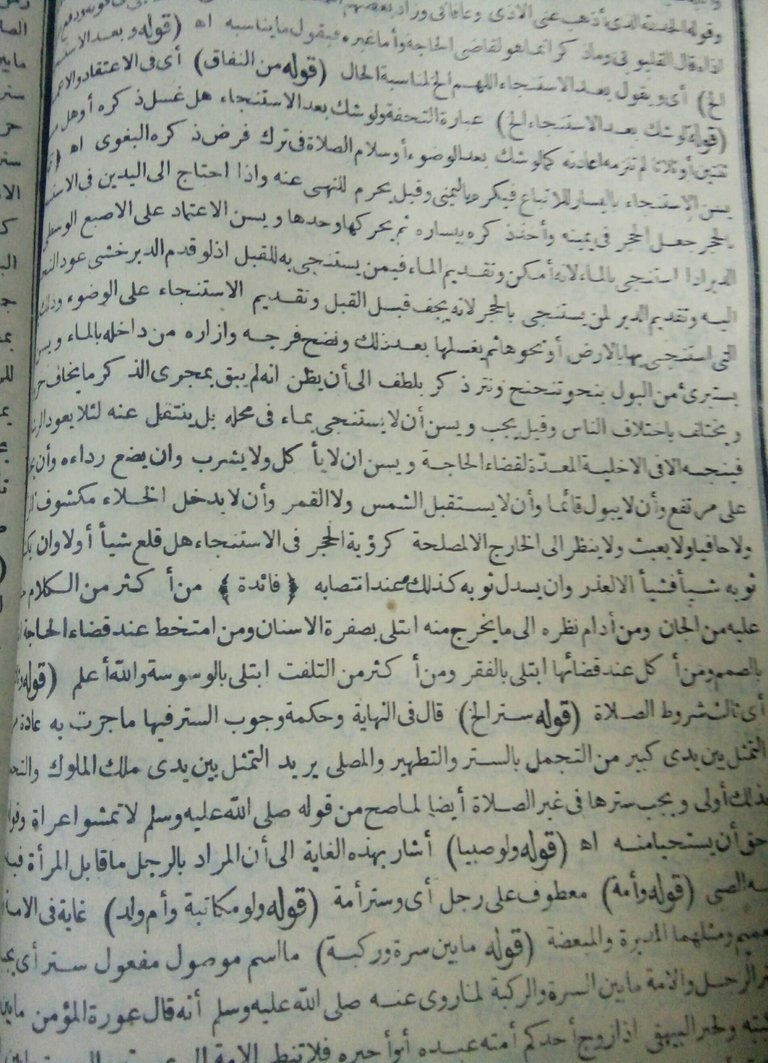 وقوله الحمد لله الذى أذهب عنى الأذى وعافانى وزاد بعضهم
اذا له قال القليوبى وما ذكر انما هو لقاضى الحاجة وأما غيره فيقول ما يناسبه اه (قوله وبعد
الخ) أى ويقول بعد الاستنجاء اللهم الخ لمناسبة الحال (قوله من النفاق) أى فى الاعتقاد
(قوله لو شك بعد الاستنجاء الخ) عبارة التحفة ولو شك بعد الاستنجاء هل غسل ذكره أو هل
ثنتين أو ثلاثا لم تلزمه اعادته كما لو شك بعد الوضوء أو سلام الصلاة فى ترك فرض ذكره البغوى اه
يسن الاستنجاء باليسار للاتباع فيكره باليمنى وقيل يحرم للنهى عنه واذا احتاج الى اليدين فى
بالحجر جعل الحجر فى يمينه وأخذ ذكره بيساره ثم يحركها وحدها ويسن الاعتماد على الاصبع الوسطى
الدبر اذا استنجى بالماء لانه أمكن وتقديم الماء فيمن يستنجى به للقبل اذ لو قدم الدبر خشى عود
اليه وتقديم الدبر لمن يستنجى بالحجر لانه يجف قبل القبل وتقديم الاستنجاء على الوضوء
التى استنجى بها بالارض أو نحوها ثم يغسلها بعد ذلك ونضح فرجه وازاره من داخله بالماء
يستبرئ من البول بنحو تنحنح ونتر ذكر بلطف الى أن يظن انه لم يبق بمجرى الذكر ما يخاف
ويختلف باختلاف الناس وقيل يجب ويسن أن لا يستنجى بماء فى محله بل ينتقل عنه لئلا يعود
فينجسه الا فى الاخلية المعدة لقضاء الحاجة ويسن ان لا يأكل ولا يشرب وان يضع رداءه
على مرتفع وأن لا يبول قائما وأن لا يستقبل الشمس ولا القمر وأن لا يدخل الخلاء مكشوف
ولا حافيا ولا يعبث ولا ينظر الى الخارج الا لمصلحة كرؤية الحجر فى الاستنجاء هل قلع شيأ أو لا وان
ثوبه شيأ فشيأ الا لعذر وان يسدل ثوبه كذلك عند انتصابه ﴿فائدة﴾ من أكثر من الكلام
عليه من الجان ومن أدام نظره الى ما يخرج منه ابتلى بصفرة الاسنان ومن امتخط عند قضاء الحاجة
بالصمم ومن أكل عند قضائها ابتلى بالفقر ومن أكثر من التلفت ابتلى بالوسوسة والله أعلم (قوله
أى ثالث شروط الصلاة (قوله ستر الخ) قال فى النهاية وحكمة وجوب الستر فيها ما جرت به عادة
التمثل بين يدى كبير من التجمل بالستر والتطهير والمصلى يريد التمثل بين يدى ملك الملوك
بذلك أولى ويجب سترها فى غير الصلاة أيضا لما صح من قوله صلى الله عليه وسلم لا تمشوا عراة
حق أن يستحيا منه اه (قوله ولو صبيا) أشار بهذه الغاية الى أن المراد بالرجل ما قابل المرأة
الصبى (قوله وأمة) معطوف على رجل أى وستر أمة (قوله ولو مكاتبة وأم ولد) غاية فى
ومثلهما المدبرة والمبعضة (قوله ما بين سرة وركبة) ما اسم موصول مفعول ستر أى
الرجل والامة ما بين السرة والركبة لما روى عنه صلى الله عليه وسلم أنه قال عورة المؤمن ما
ولخبر البيهقى اذا زوج أحدكم أمته عبده أو أجيره فلا تنظر الامة الى